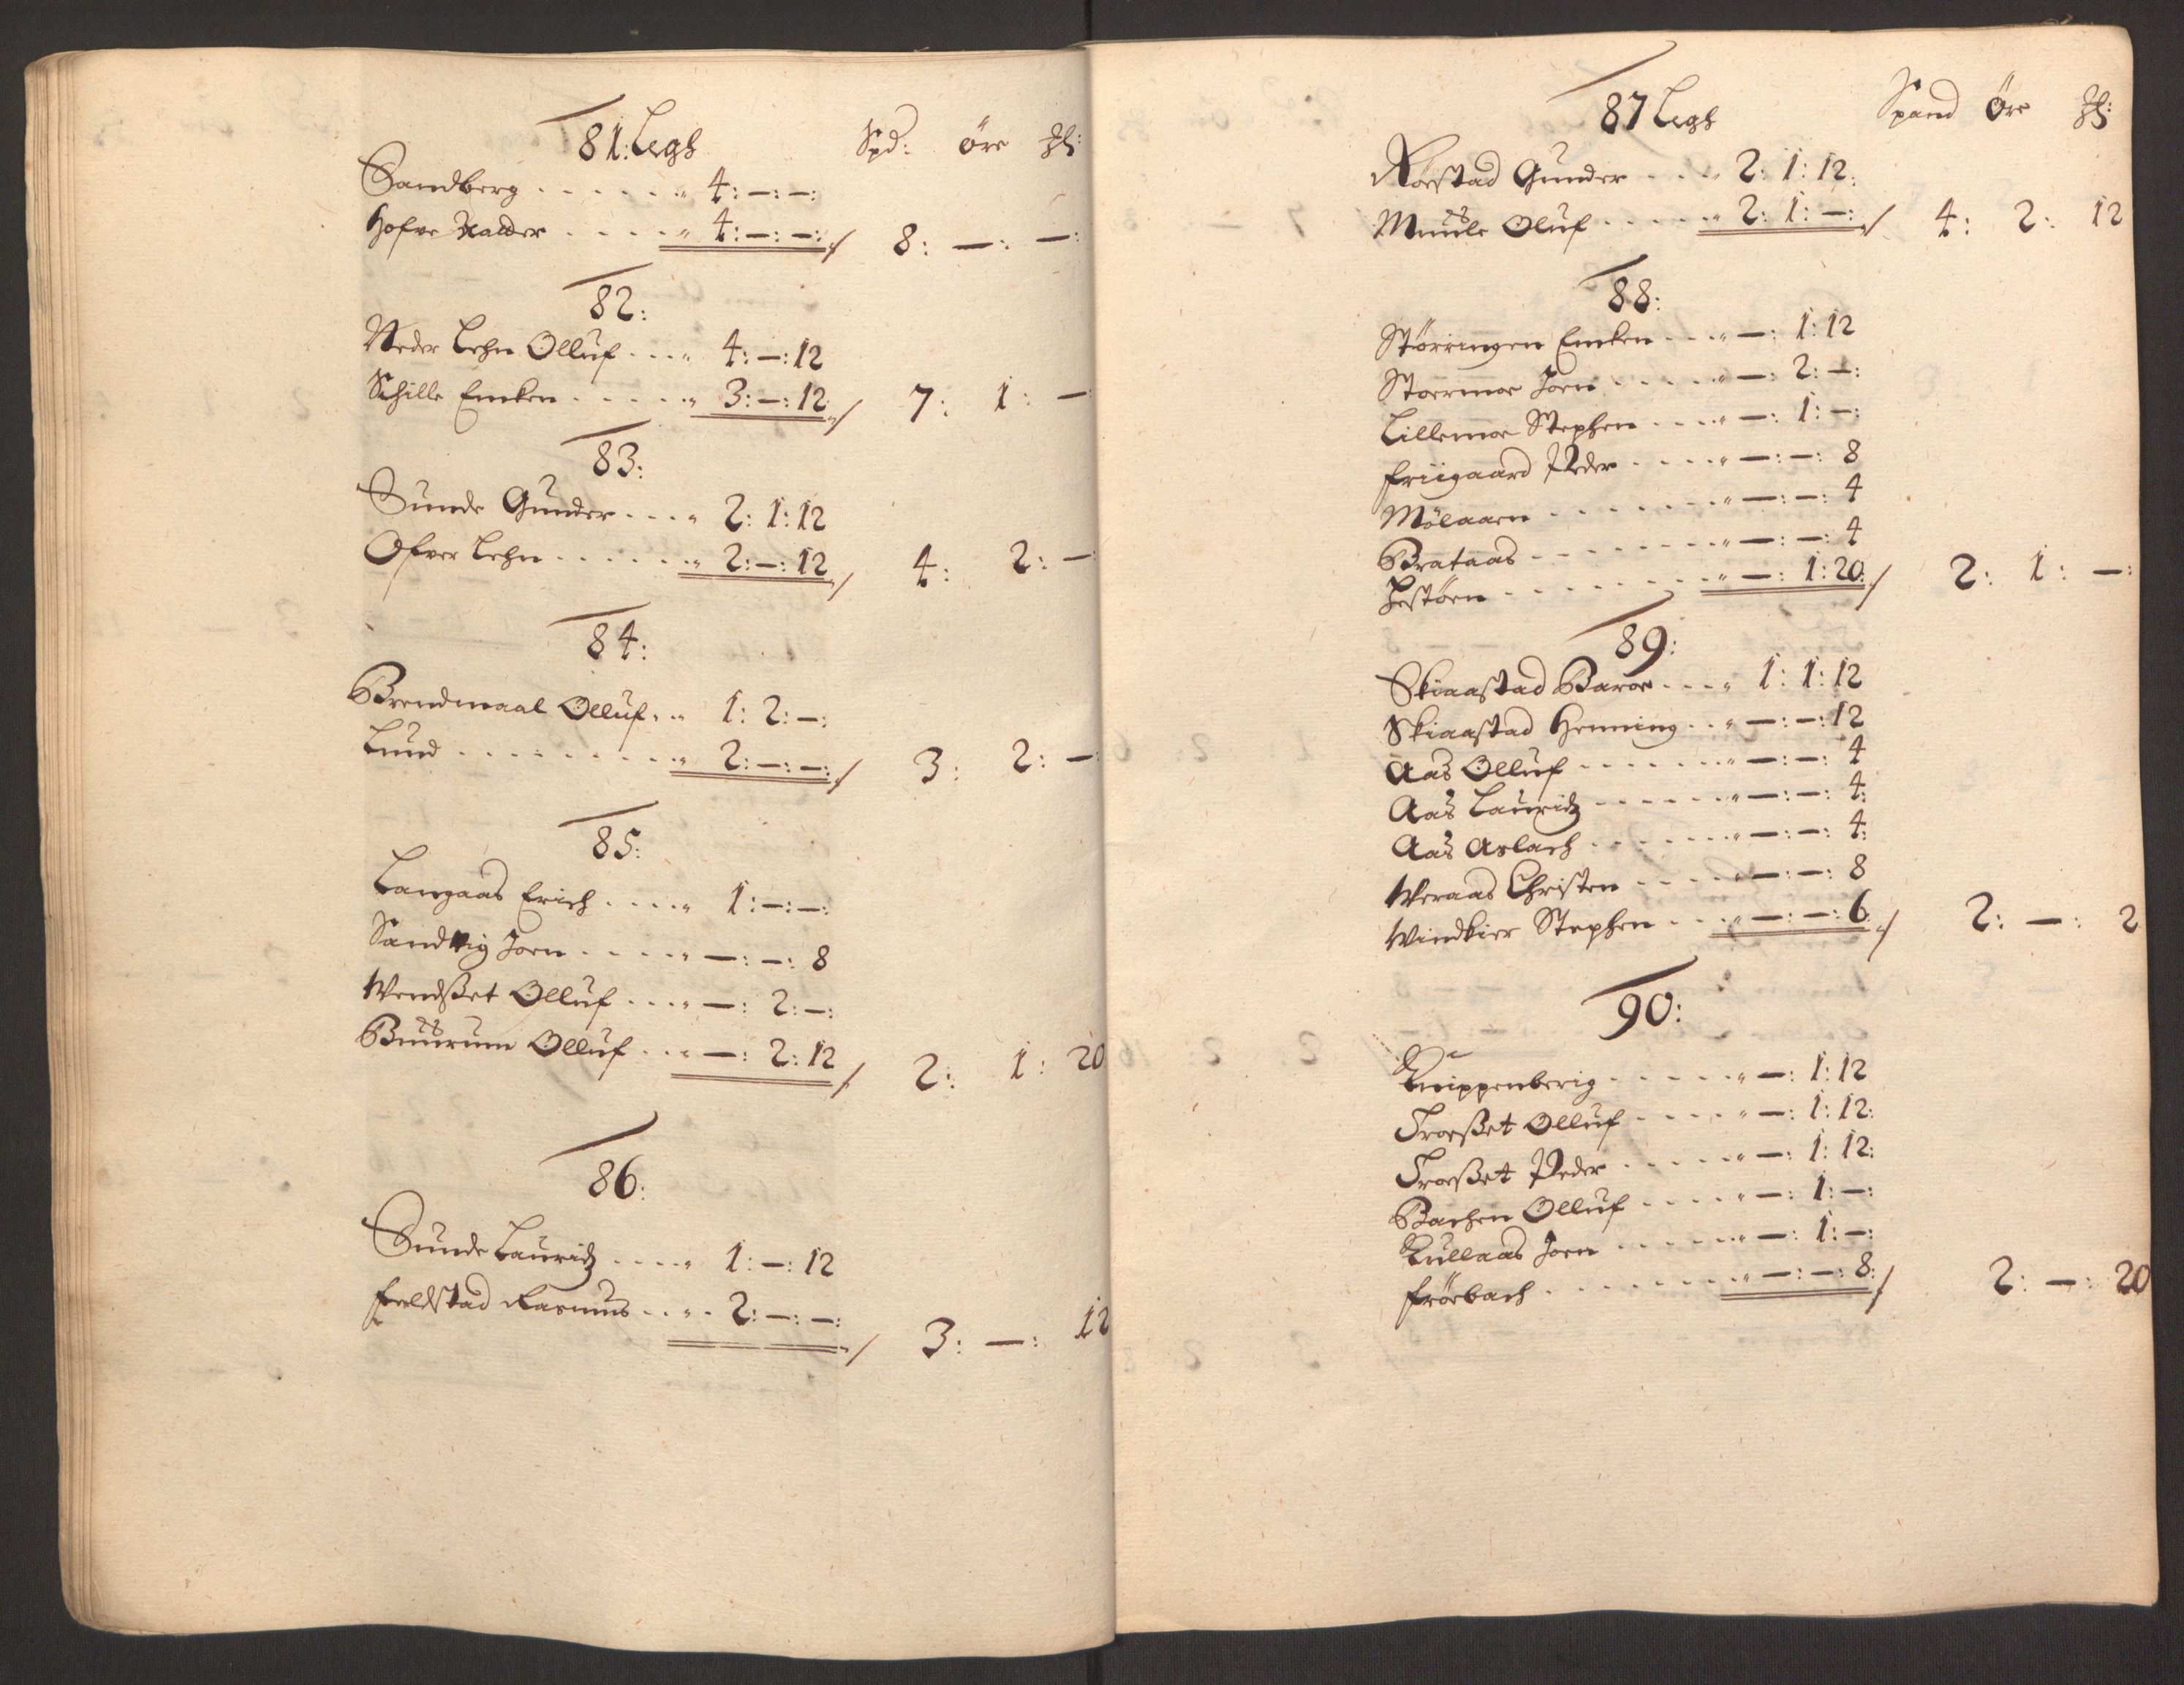 81: Legh Spd: öre
Sandberg . . . . . . „ 4: —: —:
Hofve . . . . „ 4: —: —: / 8: —: —:
82:
Neder Lehn Olluf . . . „ 4: —: 12
Schille Encken . . . . . „ 3: —: 12 / 7: 1: —
83:
Sunde Gunder . . . „ 2: 1: 12
Ofver Lehn . . . . . . „ 2: —: 12 / 4: 2: —:
84:
Brendmaal Olluf . „ 1: 2: —:
Lund . . . . . . . . . „ 2: —: —: / 3: 2: —:
85:
Langaas Erich . . . . „ 1: —: —:
Sandvig Joen . . . . . „ —: —: 8
Wendßet Olluf . . . „ —: 2: —:
Buurum Olluf . . „ —: 2: 12 / 2: 1: 20
86:
Sunde Lauridz . . . . „ 1: —: 12
Feeldstad Rasmus . . „ . 2: —: —: / 3: —: 12
87 Legh Spand Öre
Roestad Gunder . . . „ 2: 1: 12:
Muule Oluf . . . . . „ 2: 1: —: / 4: 2: 12
88:
Störringen Encken . . . „ —: 1: 12
Stoermoe Joen . . . . . „ —: 2: —:
Lillemoe Stephen . . . . „ —: 1: —:
Friigaard Peder . . . . „ —: —: 8
Mölaaen . . . . . . . „ —: —: 4
Brataas . . . . . . . . „ —: —: 4
. . . . . . . . „ —: 1: 20: / 2: 1: —:
89:
Skiaastad Baroe . . . „ 1: 1: 12
Skiaastad Henning . . „ —: —: 12
Aas Olluf . . . . . . . „ —: —: 4
Aas Lauridz . . . . . . „ —: —: 4:
Aas Aslach . . . . . . . „ —: —: 4:
Weraas Christen . . . . „ —: —: 8
Windkier Stephen . . . „ —: —: 6 / 2: —: 2
90:
Knippenberig . . . . . „ —: 1: 12
Troeßet Olluf . . . . „ —: 1: 12:
Troeßet Peder . . . . . „ —: 1: 12:
Bachen Olluf . . . . „ —: 1: —:
Kullaas Joen . . . . . . „ —: 1: —:
Fröebach . . . . . . . „ —: —: 8: / 2: —: 20